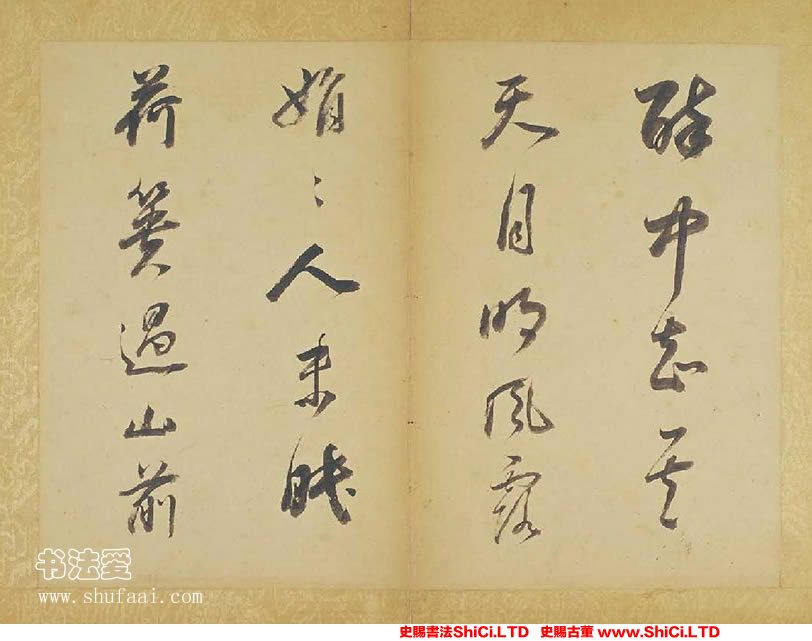 醉中知其
天月明風露
娟〻人未眠
荷簣過山前
书法爱
www.shufaai.com
史賜書法ShiCi.LTD 史賜古董 www.ShiCi.LTD